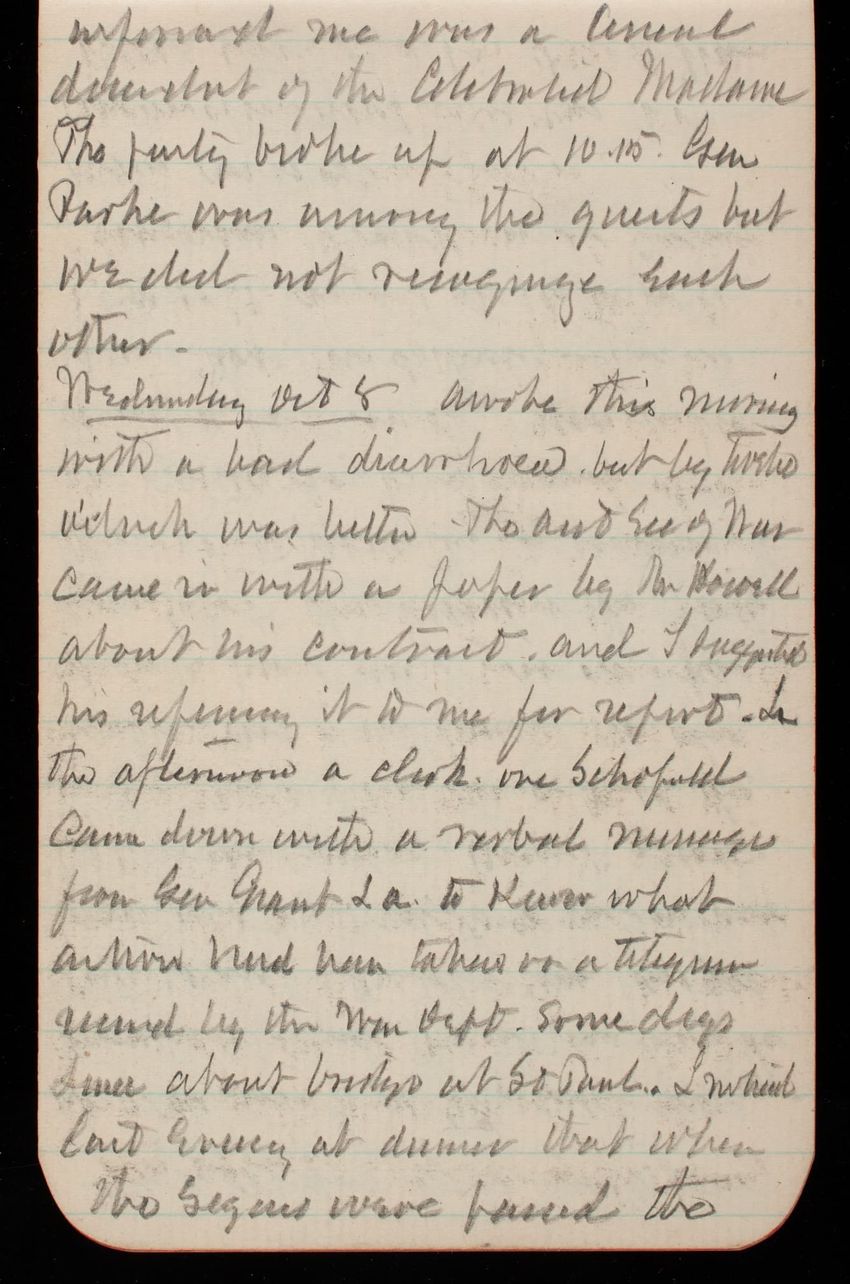 informed me was a lineal
descendant of the Celebrated Madame
The party broke up at 10.15. Gen
Parke was among the guests but
we did not recognize each
other -
Wednesday Oct 8 awoke this morning
with a bad diarrhoea. but by twelve
o'clock was better. The asst Sec of War
came in with a paper by Mr Howell
about his contract. and I suggested
his referring it to me for report. In
the afternoon a clerk. one Schofield
came down with a verbal message
from Gen Grant to know what
action had been taken on a telegram
received by the War Dept. Some days
since about bridge at St Paul. I noticed
last Evening at dinner that when
the Segars were passed the